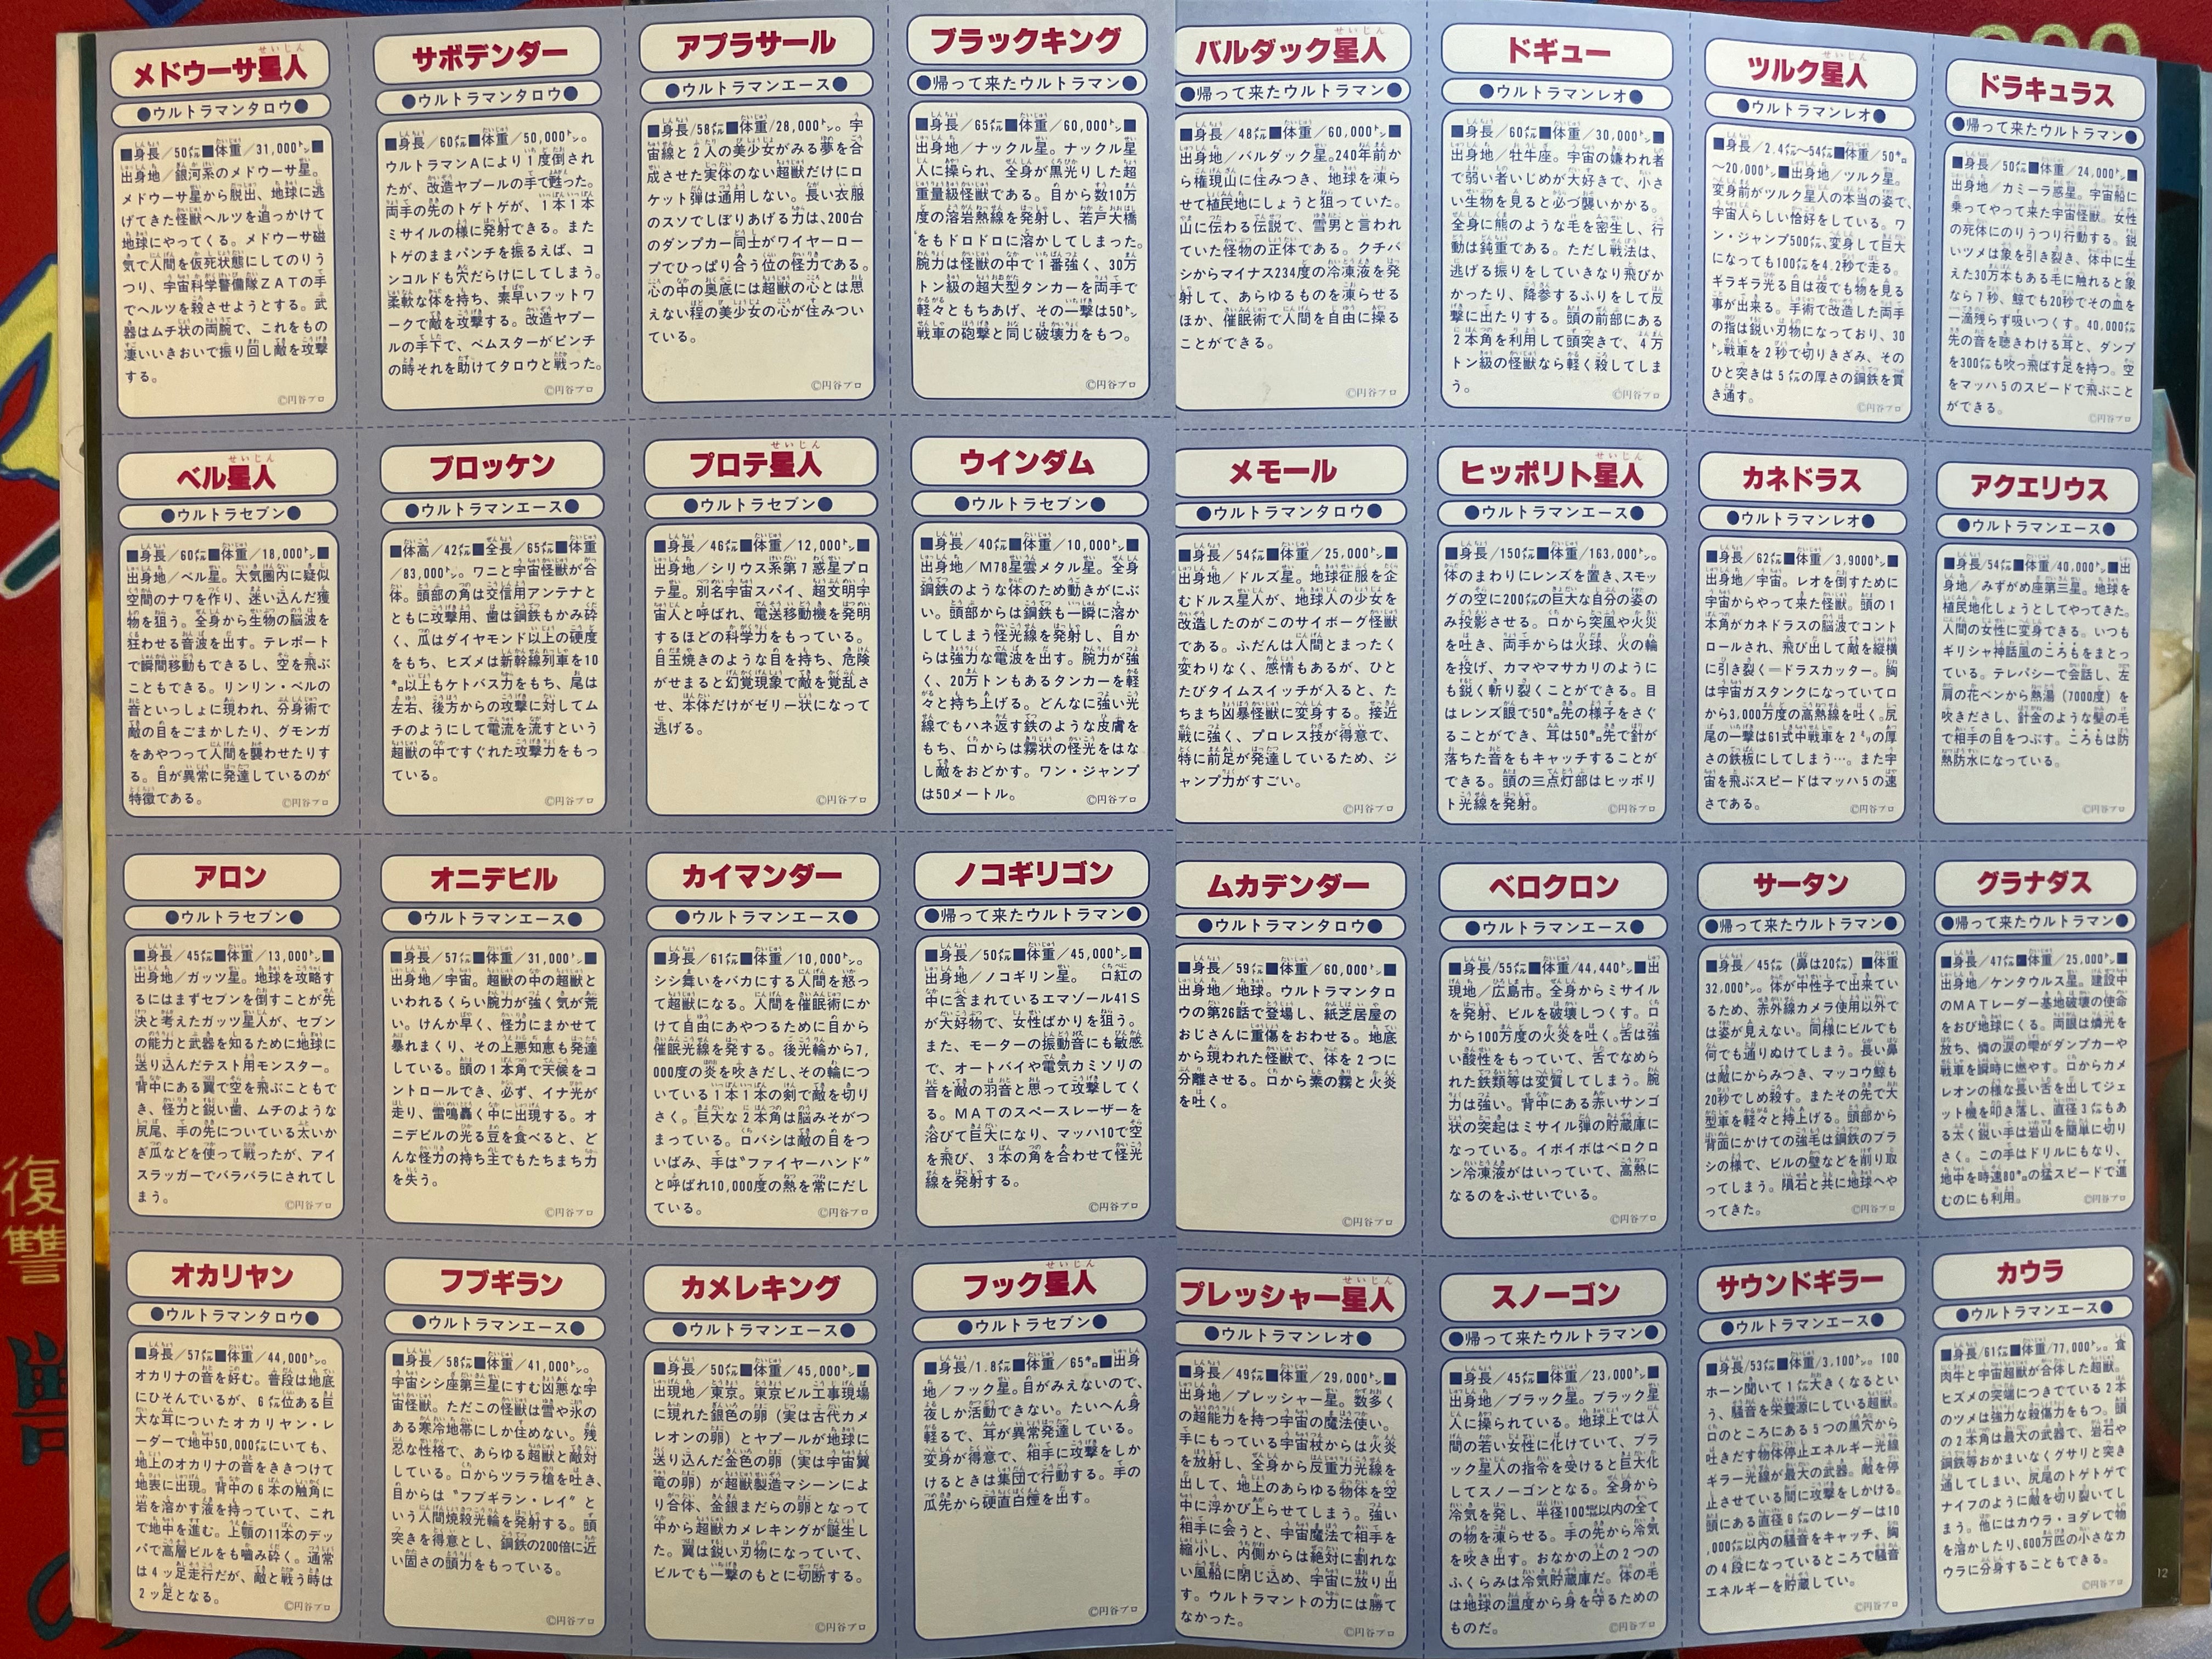 メドウーサ星人
●ウルトラマンタロウ●
■身長/50㍍■体重/31,000㌧■
出身地/銀河系のメドウーサ星。
メドウーサ星から脱出、地球に逃
げてきた怪獣ヘルツを追っかけて
地球にやってくる。メドウーサ磁
気で人間を仮死状態にしてのりう
つり、宇宙科学警備隊ZATの手
でヘルツを殺させようとする。武
器はムチ状の両腕で、これをもの
凄いいきおいで振り回し敵を攻撃
する。
©円谷プロ
サボデンダー
●ウルトラマンタロウ●
■身長/60㍍■体重/50,000㌧。
ウルトラマンAにより1度倒され
たが、改造ヤプールの手で甦った。
両手の先のトゲトゲが、1本1本
ミサイルの様に発射できる。また
トゲのままパンチを振るえば、コ
ンコルドも穴だらけにしてしまう。
柔軟な体を持ち、素早いフットワ
ークで敵を攻撃する。改造ヤプー
ルの手下で、ベムスターがピンチ
の時それを助けてタロウと戦った。
©円谷プロ
アプラサール
●ウルトラマンエース●
■身長/58㍍■体重/28,000㌧。宇
宙線と2人の美少女がみる夢を合
成させた実体のない超獣だけにロ
ケット弾は通用しない。長い衣服
のスソでしぼりあげる力は、200台
のダンプカー同士がワイヤーロー
プでひっぱり合う位の怪力である。
心の中の奥底には超獣の心とは思
えない程の美少女の心が住みつい
ている。
©円谷プロ
ブラックキング
●帰って来たウルトラマン●
■身長/65㍍■体重/60,000㌧■
出身地/ナックル星。ナックル星
人に操られ、全身が黒光りした超
重量級怪獣である。目から数10万
度の溶岩熱線を発射し、若戸大橋
をもドロドロに溶かしてしまった。
腕力は怪獣の中で1番強く、30万
トン級の超大型タンカーを両手で
軽々ともちあげ、その一撃は50㌧
戦車の砲撃と同じ破壊力をもつ。
©円谷プロ
バルダック星人
●帰って来たウルトラマン●
■身長/48㍍■体重/60,000㌧■
出身地/バルダック星。240年前か
ら権現山に住みつき、地球を凍ら
せて植民地にしようと狙っていた。
山に伝わる伝説で、雪男と言われ
ていた怪物の正体である。クチバ
シからマイナス234度の冷凍液を発
射して、あらゆるものを凍らせる
ほか、催眠術で人間を自由に操る
ことができる。
©円谷プロ
ドギュー
●ウルトラマンレオ●
■身長/60㍍■体重/30,000㌧■
出身地/牡牛座。宇宙の嫌われ者
で弱い者いじめが大好きで、小さ
い生物を見ると必づ襲いかかる。
全身に熊のような毛を密生し、行
動は鈍重である。ただし戦法は、
逃げる振りをしていきなり飛びか
かったり、降参するふりをして反
撃に出たりする。頭の前部にある
2本角を利用して頭突きで、4万
トン級の怪獣なら軽く殺してしま
う。
©円谷プロ
ツルク星人
●ウルトラマンレオ●
■身長/2.4㍍〜54㍍■体重/50㌔
〜20,000㌧■出身地/ツルク星。
変身前がツルク星人の本当の姿で、
宇宙人らしい恰好をしている。ワ
ン・ジャンプ500㍍、変身して巨大
になっても100㍍を4.2秒で走る。
ギラギラ光る目は夜でも物を見る
事が出来る。手術で改造した両手
の指は鋭い刃物になっており、30
㌧戦車を2秒で切りきざみ、その
ひと突きは5㍍の厚さの鋼鉄を貫
き通す。
©円谷プロ
ドラキュラス
●帰って来たウルトラマン●
■身長/50㍍■体重/24,000㌧■
出身地/カミーラ惑星。宇宙船に
乗ってやって来た宇宙怪獣。女性
の死体にのりうつり行動する。鋭
いツメは象を引き裂き、体中に生
えた30万本もある毛に触れると象
なら7秒、鯨でも20秒でその血を
一滴残らず吸いつくす。40,000㍍
先の音を聴きわける耳と、ダンプ
を300㍍も吹っ飛ばす足を持つ。空
をマッハ5のスピードで飛ぶこと
ができる。
©円谷プロ
ベル星人
●ウルトラセブン●
■身長/60㍍■体重/18,000㌧■
出身地/ベル星。大気圏内に疑似
空間のナワを作り、迷い込んだ獲
物を狙う。全身から生物の脳波を
狂わせる音波を出す。テレポート
で瞬間移動もできるし、空を飛ぶ
こともできる。リンリン・ベルの
音といっしょに現われ、分身術で
敵の目をごまかしたり、グモンガ
をあやつって人間を襲わせたりす
る。目が異常に発達しているのが
特徴である。
©円谷プロ
ブロッケン
●ウルトラマンエース●
■体高/42㍍■全長/65㍍■体重
/83,000㌧。ワニと宇宙怪獣が合
体。頭部の角は交信用アンテナと
ともに攻撃用、歯は鋼鉄もかみ砕
く、瓜はダイヤモンド以上の硬度
をもち、ヒズメは新幹線列車を10
㌔以上もケトバス力をもち、尾は
左右、後方からの攻撃に対してム
チのようにして電流を流すという
超獣の中ですぐれた攻撃力をもっ
ている。
©円谷プロ
プロテ星人
●ウルトラセブン●
■身長/46㍍■体重/12,000㌧■
出身地/シリウス系第7惑星プロ
テ星。別名宇宙スパイ、超文明宇
宙人と呼ばれ、電送移動機を発明
するほどの科学力をもっている。
目玉焼きのような目を持ち、危険
がせまると幻覚現象で敵を覚乱さ
せ、本体だけがゼリー状になって
逃げる。
©円谷プロ
ウインダム
●ウルトラセブン●
■身長/40㍍■体重/10,000㌧■
出身地/M78星雲メタル星。全身
鋼鉄のような体のため動きがにぶ
い。頭部からは鋼鉄も一瞬に溶か
してしまう怪光線を発射し、目か
らは強力な電波を出す。腕力が強
く、20万トンもあるタンカーを軽
々と持ち上げる。どんなに強い光
線でもハネ返す鉄のような皮膚を
もち、口からは霧状の怪光をはな
し敵をおどかす。ワン・ジャンプ
は50メートル。
©円谷プロ
メモール
●ウルトラマンタロウ●
■身長/54㍍■体重/25,000㌧■
出身地/ドルズ星。地球征服を企
むドルス星人が、地球人の少女を
改造したのがこのサイボーグ怪獣
である。ふだんは人間とまったく
変わりなく、感情もあるが、ひと
たびタイムスイッチが入ると、た
ちまち凶暴怪獣に変身する。接近
戦に強く、プロレス技が得意で、
特に前足が発達しているため、ジ
ャンプ力がすごい。
©円谷プロ
ヒッポリト星人
●ウルトラマンエース●
■身長/150㍍■体重/163,000㌧。
体のまわりにレンズを置き、スモッ
グの空に200㍍の巨大な自分の姿の
み投影させる。口から突風や火災
を吐き、両手からは火球、火の輪
を投げ、カマやマサカリのように
も鋭く斬り裂くことができる。目
はレンズ眼で50㌔先の様子をさぐ
ることができ、耳は50㌔先で針が
落ちた音をもキャッチすることが
できる。頭の三点灯部はヒッポリ
ト光線を発射。
©円谷プロ
カネドラス
●ウルトラマンレオ●
■身長/62㍍■体重/3,9000㌧■
出身地/宇宙。レオを倒すために
宇宙からやって来た怪獣。頭の1
本角がカネドラスの脳波でコント
ロールされ、飛び出して敵を縦横
に引き裂く＝ドラスカッター。胸
は宇宙ガスタンクになっていてロ
から3,000万度の高熱線を吐く。尻
尾の一撃は61式中戦車を2㍉の厚
さの鉄板にしてしまう…。また宇
宙を飛ぶスピードはマッハ5の速
さである。
©円谷プロ
アクエリウス
●ウルトラマンエース●
■身長/54㍍■体重/40,000㌧■出
身地/みずがめ座第三星。地球を
植民地化しょうとしてやってきた。
人間の女性に変身できる。いつも
ギリシャ神話風のころもをまとっ
ている。テレパシーで会話し、左
肩の花ペンから熱湯（7000度）を
吹きだし、針金のような髪の毛
で相手の目をつぶす。ころもは防
熱防水になっている。
©円谷プロ
アロン
●ウルトラセブン●
■身長/45㍍■体重/13,000㌧■
出身地/ガッツ星。地球を攻略す
るにはまずセブンを倒すことが先
決と考えたガッツ星人が、セブン
の能力と武器を知るために地球に
送り込んだテスト用モンスター。
背中にある翼で空を飛ぶこともで
き、怪力と鋭い歯、ムチのような
尻尾、手の先についている太いか
ぎ瓜などを使って戦ったが、アイ
スラッガーでバラバラにされてし
まう。
©円谷プロ
オニデビル
●ウルトラマンエース●
■身長/57㍍■体重/31,000㌧■
出身地/宇宙。超獣の中の超獣と
いわれるくらい腕力が強く気が荒
い。けんか早く、怪力にまかせて
暴れまくり、その上悪知恵も発達
している。頭の1本角で天候をコ
ントロールでき、必ず、イナ光が
走り、雷鳴轟く中に出現する。オ
ニデビルの光る豆を食べると、ど
んな怪力の持ち主でもたちまち力
を失う。
©円谷プロ
カイマンダー
●ウルトラマンエース●
■身長/61㍍■体重/10,000㌧。
シシ舞いをバカにする人間を怒っ
て超獣になる。人間を催眠術にか
けて自由にあやつるために目から
催眠光線を発する。後光輪から7,
000度の炎を吹きだし、その輪につ
いている1本1本の剣で敵を切り
さく。巨大な2本角は脳みそがつ
まっている。ロバシは敵の目をつ
いばみ、手は"ファイヤーハンド"
と呼ばれ10,000度の熱を常にだし
ている。
©円谷プロ
ノコギリゴン
●帰って来たウルトラマン●
■身長/50㍍■体重/45,000㌧■
出身地/ノコギリン星。口紅の
中に含まれているエマゾール41S
が大好物で、女性ばかりを狙う。
また、モーターの振動音にも敏感
で、オートバイや電気カミソリの
音を敵の羽音と思って攻撃してく
る。MATのスペースレーザーを
浴びて巨大になり、マッハ10で空
を飛び、3本の角を合わせて怪光
線を発射する。
©円谷プロ
ムカデンダー
●ウルトラマンタロウ●
■身長/59㍍■体重/60,000㌧■
出身地/地球。ウルトラマンタロ
ウの第26話で登場し、紙芝居屋の
おじさんに重傷をおわせる。地底
から現われた怪獣で、体を2つに
分離させる。口から素の霧と火炎
を吐く。
©円谷プロ
ベロクロン
●ウルトラマンエース●
■身長/55㍍■体重/44,440㌧■出
現地/広島市。全身からミサイル
を発射、ビルを破壊しつくす。口
から100万度の火炎を吐く。舌は強
い酸性をもっていて、舌でなめら
れた鉄類等は変質してしまう。腕
力は強い。背中にある赤いサンゴ
状の突起はミサイル弾の貯蔵庫に
なっている。イボイボはベロクロ
ン冷凍液がはいっていて、高熱に
なるのをふせいでいる。
©円谷プロ
サータン
●帰って来たウルトラマン●
■身長/45㍍（鼻は20㍍）■体重
32,000㌧。体が中性子で出来てい
るため、赤外線カメラ使用以外で
は姿が見えない。同様にビルでも
何でも通りぬけてしまう。長い鼻
は敵にからみつき、マッコウ鯨も
20秒でしめ殺す。またその先で大
型車を軽々と持上げる。頭部から
背面にかけての強毛は鋼鉄のブラ
シの様で、ビルの壁などを削り取
ってしまう。隕石と共に地球へや
ってきた。
©円谷プロ
グラナダス
●帰って来たウルトラマン●
■身長/47㍍■体重/25,000㌧■
出身地/ケンタウルス星。建設中
のMATレーダー基地破壊の使命
をおび地球にくる。両眼は燐光を
放ち、憐の涙の雫がダンプカーや
戦車を瞬時に燃やす。口からカメ
レオンの様な長い舌を出してジェ
ット機を叩き落し、直径3㍍もあ
る太く鋭い手は岩山を簡単に切り
さく。この手はドリルにもなり、
地中を時速80㌔の猛スピードで進
むのにも利用。
©円谷プロ
オカリヤン
●ウルトラマンタロウ●
■身長/57㍍■体重/44,000㌧。
オカリナの音を好む。普段は地底
にひそんでいるが、6㍍位ある巨
大な耳についたオカリヤン・レ
ーダーで地中50,000㍍にいても、
地上のオカリナの音をききつけて
地表に出現。背中の6本の触角に
岩を溶かす液を持っていて、これ
で地中を進む。上顎の11本のデッ
パで高層ビルをも嚙み砕く。通常
は4ッ足走行だが、敵と戦う時は
2ッ足となる。
©円谷プロ
フブギラン
●ウルトラマンエース●
■身長/58㍍■体重/41,000㌧。
宇宙シシ座第三星にすむ凶悪な宇
宙怪獣。ただこの怪獣は雪や氷の
ある寒冷地帯にしか住めない。残
忍な性格で、あらゆる超獣と敵対
している。口からツララ槍を吐き、
目からは"フブギラン・レイ"と
いう人間焼殺光輪を発射する。頭
突きを得意とし、鋼鉄の200倍に近
い固さの頭力をもっている。
©円谷プロ
カメレキング
●ウルトラマンエース●
■身長/50㍍■体重/45,000㌧■
出現地/東京。東京ビル工事現場
に現れた銀色の卵（実は古代カメ
レオンの卵）とヤプールが地球に
送り込んだ金色の卵（実は宇宙翼
竜の卵）が超獣製造マシーンによ
り合体、金銀まだらの卵となって
中から超獣カメレキングが誕生し
た。翼は鋭い刃物になっていて、
ビルでも一撃のもとに切断する。
©円谷プロ
フック星人
●ウルトラセブン●
■身長/1.8㍍■体重/65㌔■出身
地/フック星。目がみえないので、
夜しか活動できない。たいへん身
軽るで、耳が異常発達している。
変身が得意で、相手に攻撃をしか
けるときは集団で行動する。手の
瓜先から硬直白煙を出す。
©円谷プロ
プレッシャー星人
●ウルトラマンレオ●
■身長/49㍍■体重/29,000㌧■
出身地/プレッシャー星。数多く
の超能力を持つ宇宙の魔法使い。
手にもっている宇宙杖からは火炎
を放射し、全身から反重力光線を
出して、地上のあらゆる物体を空
中に浮かび上らせてしまう。強い
相手に会うと、宇宙魔法で相手を
縮小し、内側からは絶対に割れな
い風船に閉じ込め、宇宙に放り出
す。ウルトラマントの力には勝て
なかった。
©円谷プロ
スノーゴン
●帰って来たウルトラマン●
■身長/45㍍■体重/23,000㌧■
出身地/ブラック星。ブラック星
人に操られている。地球上では人
間の若い女性に化けていて、ブラ
ック星人の指令を受けると巨大化
してスノーゴンとなる。全身から
冷気を発し、半径100㌔以内の全て
の物を凍らせる。手の先から冷気
を吹き出す。おなかの上の2つの
ふくらみは冷気貯蔵庫だ。体の毛
は地球の温度から身を守るための
ものだ。
©円谷プロ
サウンドギラー
●ウルトラマンエース●
■身長/53㍍■体重/3,100㌧。100
ホーン聞いて1㍍大きくなるとい
う、騒音を栄養源にしている超獣。
口のところにある5つの黒穴から
吐きだす物体停止エネルギー光線
ギラー光線が最大の武器。敵を停
止させている間に攻撃をしかける。
頭にある直径6㍍のレーダーは10
,000㍍以内の騒音をキャッチ、胸
の4段になっているところで騒音
エネルギーを貯蔵してい。
©円谷プロ
カウラ
●ウルトラマンエース●
■身長/61㍍■体重/77,000㌧。食
肉牛と宇宙超獣が合体した超獣。
ヒズメの突端につきでている2本
のツメは強力な殺傷力をもつ。頭
の2本角は最大の武器で、岩石や
鋼鉄等おかまいなくグサリと突き
通してしまい、尻尾のトゲトゲで
ナイフのように敵を切り裂いてし
まう。他にはカウラ・ヨダレで物
を溶かしたり、600万匹の小さなカ
ウラに分身することもできる。
©円谷プロ
12
復
讐